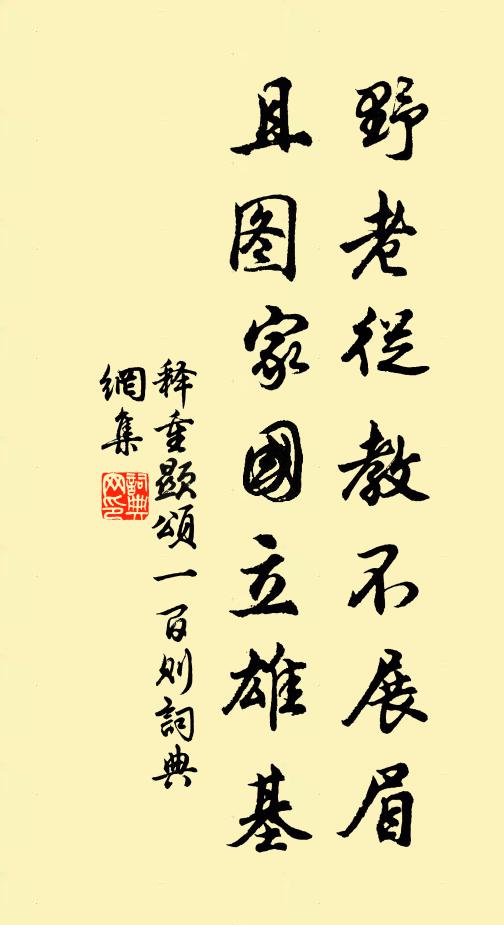 野老從教不展眉
且图家國立雄基
释重顯頌一百则詞典
網集
詞典网印